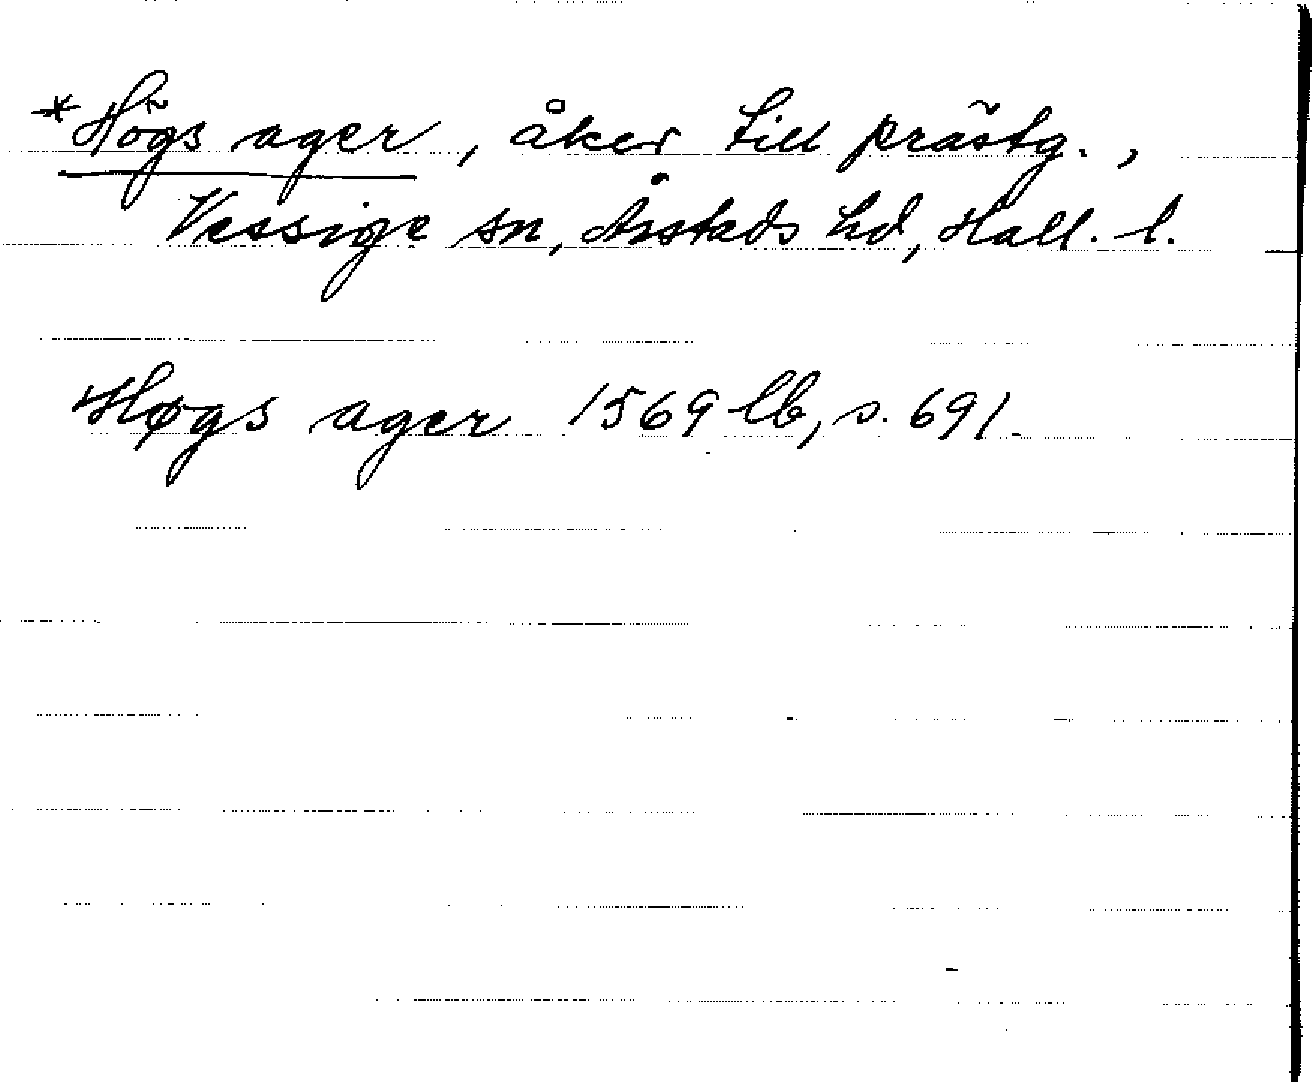 *Högs ager, åker till prästg.,
Vessige sn, Årstads hd, Hall. l.
Høgs ager 1569 lb, s. 691